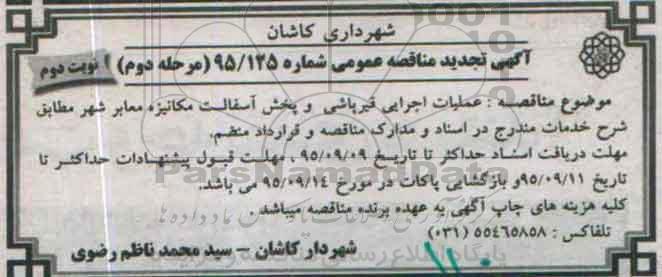 شهرداری کاشان
آگهی تجدید مناقصه عمومی شماره ۹۵/۱۲۵ (مرحله دوم)
نوبت دوم
موضوع مناقصه : عملیات اجرایی قیرپاشی و پخش آسفالت مکانیزه معابر شهر مطابق
شرح خدمات مندرج در اسناد و مدارک مناقصه و قرارداد منضم.
مهلت دریافت اسناد حداکثر تا تاریخ ۹۵/۰۹/۰۹ ، مهلت قبول پیشنهادات حداکثر تا
تاریخ ۹۵/۰۹/۱۱ و بازگشایی پاکات در مورخ ۹۵/۰۹/۱۴ می باشد.
کلیه هزینه های چاپ آگهی به عهده برنده مناقصه میباشد.
تلفاکس : ۵۵۴۶۵۸۵۸ (۰۳۱)
شهردار کاشان – سید محمد ناظم رضوی
ParsNamadData